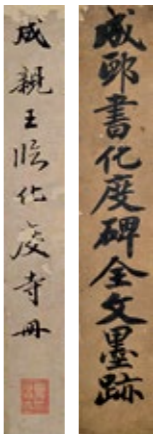 成邸書化度碑全文墨跡
成親王臨化度寺冊